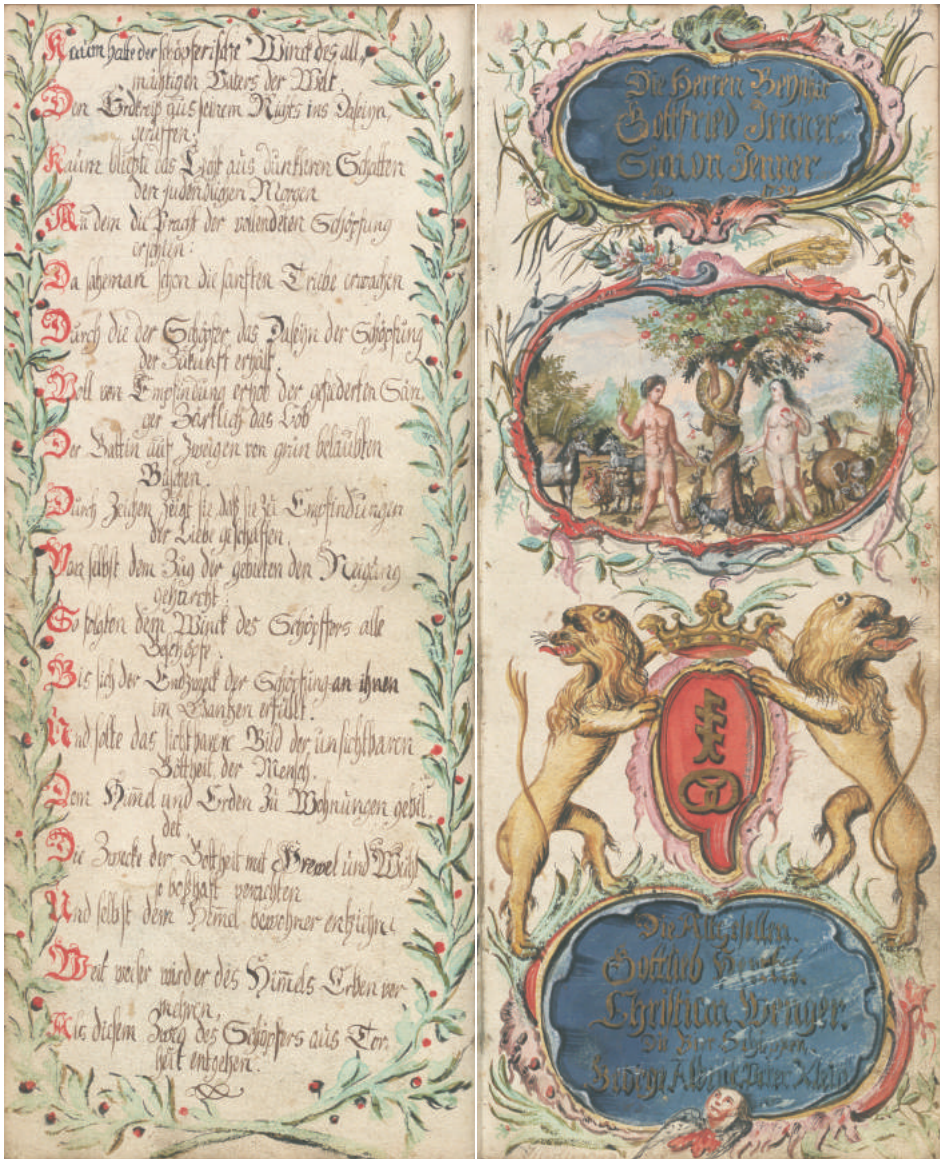 Kaum hatte der schöpferischte Winck des all,
mächtigen Vaters der Welt
Den Erdkreiß aus seinem Nichts ins Daseyn,
geruffen.
Kaum das Licht aus dunckleren Schatten
den Morgen
An dem die Pracht der vollendeten Schöpfung
erschien:
Da sahe man schon die sanften Triebe erwachen
Durch die der Schöpfer das Daseyn der Schöpfung
der Zukunft erhält.
Voll von Empfindung erhob der gefiderten Sän
ger Zärtlich das Lob
Der Gattin auf Zweigen von grün belaubten
Büschen.
Durch Zeichen Zeigt sie daß sie zu Empfindungen
der Liebe geschaffen.
Von selbst dem Zug der gebieten den Neigung
gehorcht.
So folgten dem Winck des Schöpffers alle
Geschöpfe.
Bis sich der Endzweck der Schöpfung an ihnen
im Gantzen erfüllt.
Und solte das sichtbarere Bild der unsichtbaren
Gottheit der Mensch.
Dem Him̅el und Erden Zu Wohnungen gebil,
det
Die Zwecke der Gottheit mit Frevel und
so boßhaft verachten
Und selbst dem Him̅el bewohner entziehn:
Weit weder würd er des Him̅els Erben ver
mehren,
Aus diesem Zweg des Schöpfers aus Tor,
heit entgehen.
Die Herren Beysitzer
Gottfried Jenner.
Simon Jenner
Die Altgesellen.
Gottlieb
Christian Wenger.
Die
George Peter Klein